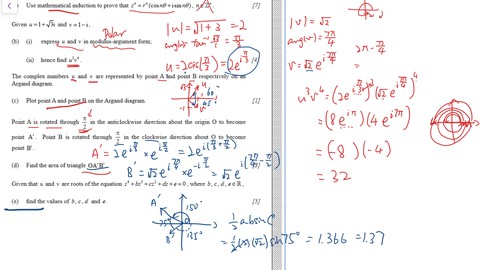 Use mathematical induction to prove that zⁿ = rⁿ(cos nθ + i sin nθ), n∈ℤ⁺. [7]
Given u = 1 + √3i and v = 1 − i,
Polar
(b) (i) express u and v in modulus-argument form;
(ii) hence find u³v⁴.
The complex numbers u and v are represented by point A and point B respectively on an Argand diagram.
(c) Plot point A and point B on the Argand diagram. [2]
Point A is rotated through π/2 in the anticlockwise direction about the origin O to become point A′. Point B is rotated through π/2 in the clockwise direction about O to become point B′.
(d) Find the area of triangle OA′B′.
Given that u and v are roots of the equation z⁴ + bz³ + cz² + dz + e = 0, where b, c, d, e ∈ ℝ,
(e) find the values of b, c, d and e. [5]
|u| = √(1+3) = 2
arg(u) = tan⁻¹ √3/1 = π/3
u = 2cis(π/3) = 2e^(iπ/3)
|v| = √2
arg(v) = 7π/4
2π − π/4
v = √2 e^(i7π/4)
u³v⁴ = (2e^(iπ/3))³ (√2 e^(i7π/4))⁴
= (8e^(iπ)) (4e^(i7π))
= (−8)(−4)
= 32
A′ = 2e^(iπ/3) × e^(iπ/2) = 2e^(i(π/3+π/2))
B′ = √2 e^(i7π/4) × e^(−iπ/2) = √2 e^(i(7π/4−π/2))
A′
B′
150°
75°
135°
½ ab sin C
= ½(2)(√2) sin 75° = 1.366 = 1.37